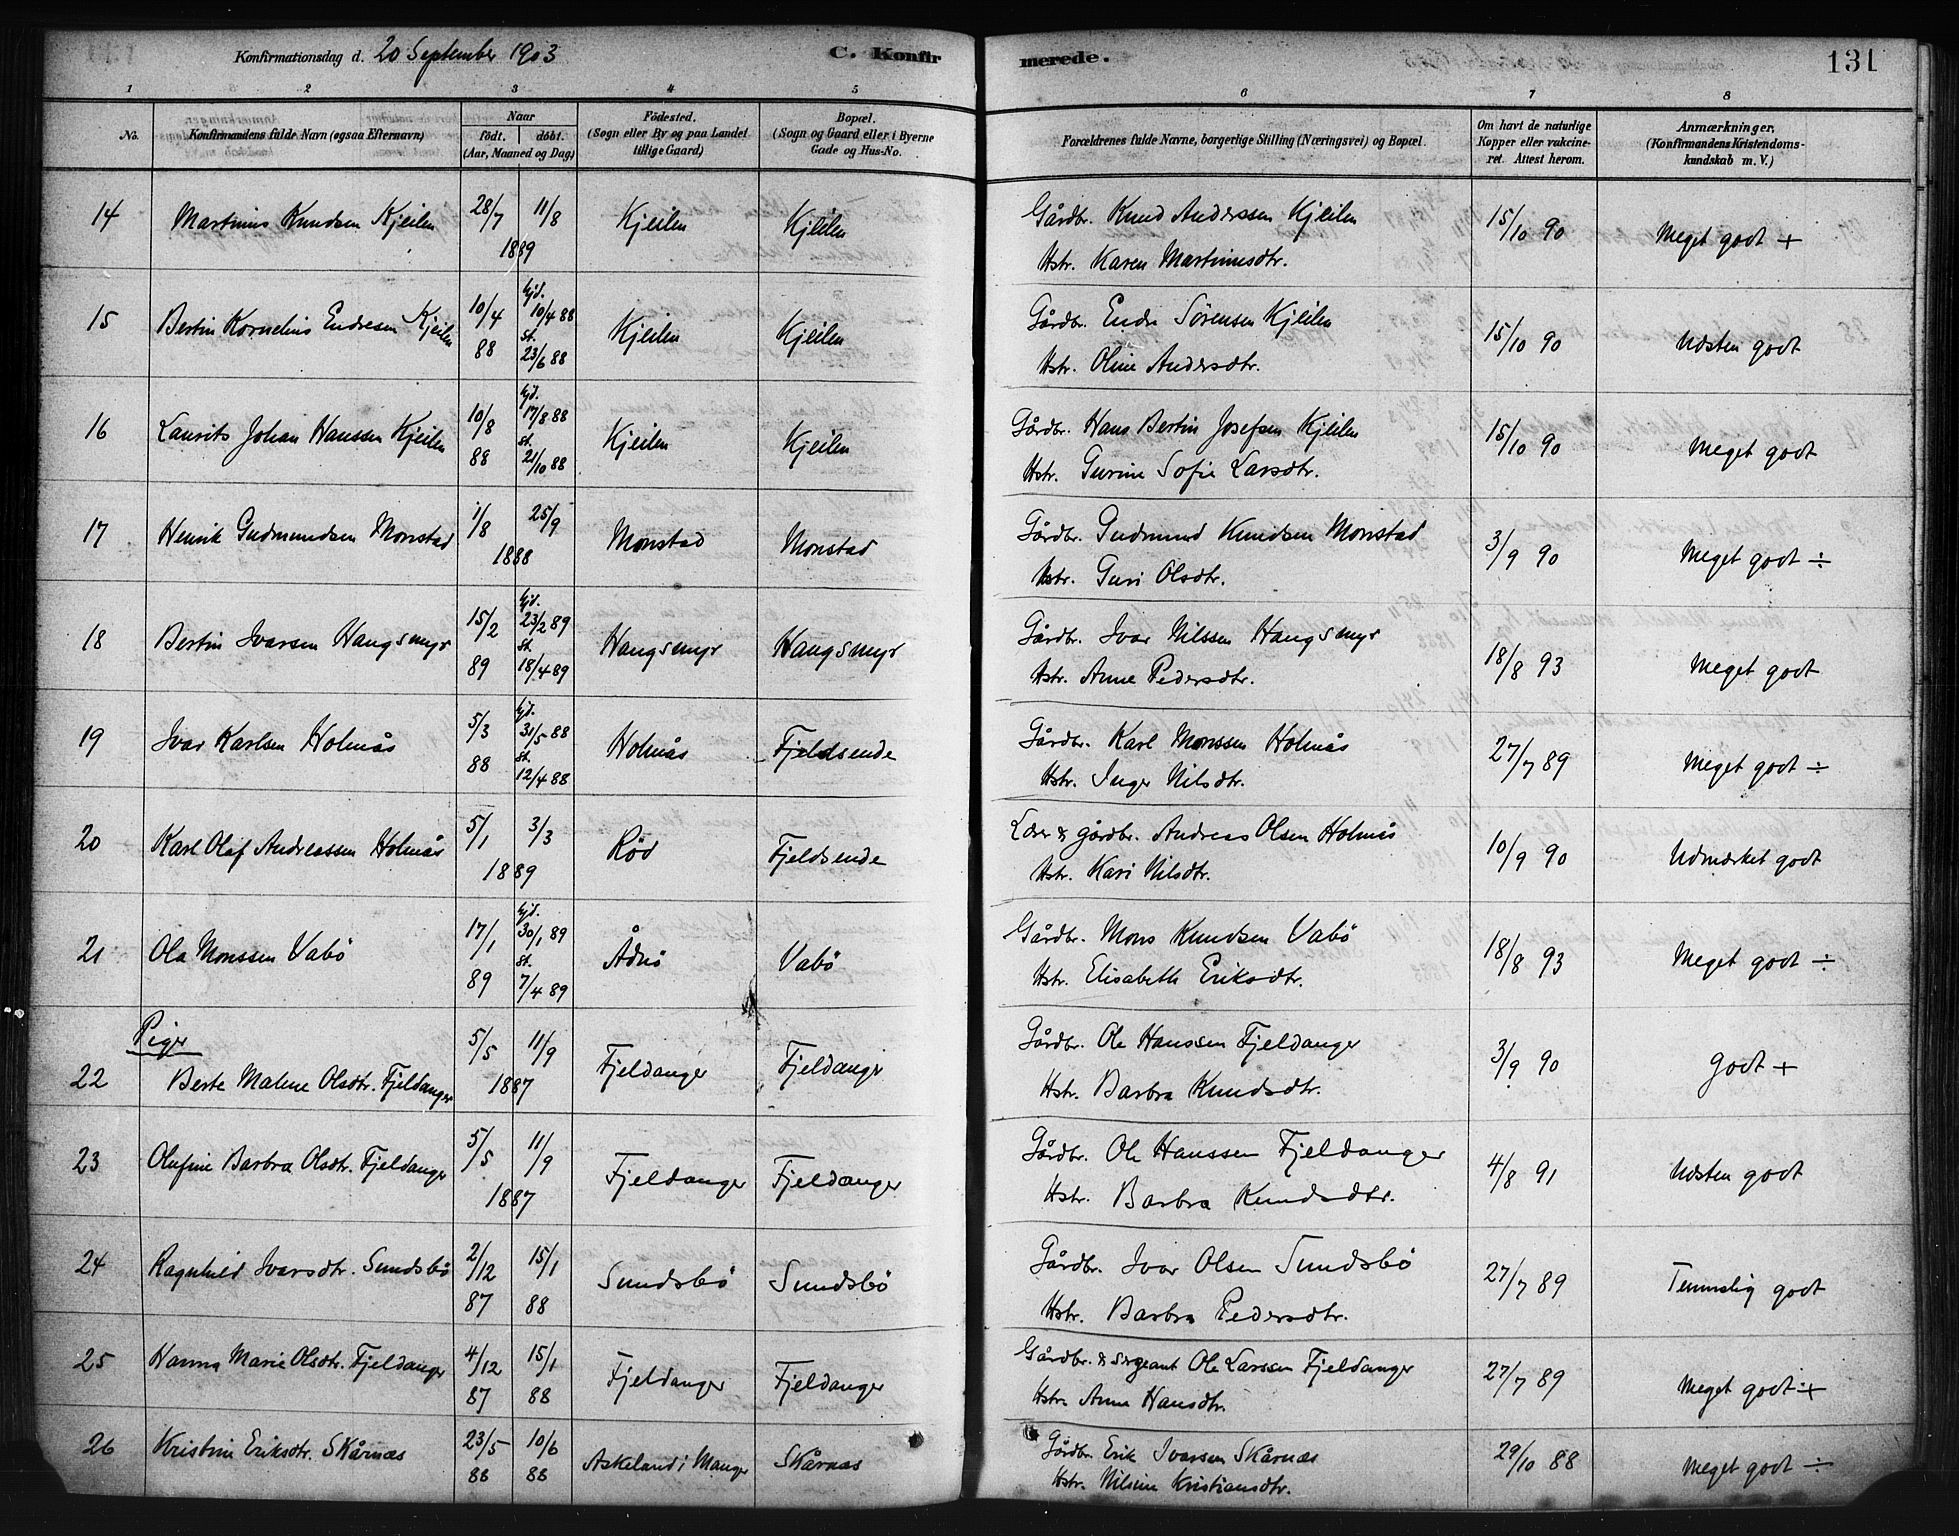 Konfirmationsdag d. 20 September 1903 C. Konfirmerede. 131
1 2 3 4 5 6 7 8
No. Konfirmandens fulde Navn (ogsaa Efternavn) Naar født. døbt. (Aar, Maaned og Dag) Fødested. (Sogn eller By og paa Landet tillige Gaard) Bopæl. (Sogn og Gaard eller i Byerne Gade og Hus-No. Forældrenes fulde Navne, borgerlige Stilling (Næringsvei) og Bopæl. Om havt de naturlige Kopper eller vakcineret. Attest herom. Anmærkninger. (Konfirmandens Kristendomskundskab m. V.)
14 Martinus Knudsen Kjeilen 28/7 11/8 1889 Kjeilen Kjeilen Gårdbr. Knud Anderssen Kjeilen 15/10 90 Meget godt +
Hstr. Karen Martinusdtr.
15 Bertin Kornelius Endresen Kjeilen 10/4 88 hjd. 10/4 88 st. 23/6 88 Kjeilen Kjeilen Gårdbr. Endre Sørensen Kjeilen 15/10 90 Næsten godt
Hstr. Oline Andersdtr.
16 Laurits Johan Hanssen Kjeilen 10/8 88 hjd. 17/8 88 st. 21/10 88 Kjeilen Kjeilen Gårdbr. Hans Bertin Josefsen Kjeilen 15/10 90 Meget godt
Hstr. Gurine Sofie Larsdtr.
17 Henrik Gudmundsen Monstad 1/8 25/9 1888 Monstad Monstad Gårdbr. Gudmund Knudsen Monstad 3/9 90 Meget godt ÷
Hstr. Guri Olsdtr.
18 Bertin Ivarsen Haugsmyr 15/2 89 hjd. 23/2 89 st. 18/4 89 Haugsmyr Haugsmyr Gårdbr. Ivar Nilssen Haugsmyr 18/8 93 Meget godt
Hstr. Anne Pedersdtr.
19 Ivar Karlsen Holmås 5/3 88 hjd. 31/5 88 st. 12/4 88 Holmås Fjeldsende Gårdbr. Karl Monssen Holmås 27/7 89 Meget godt ÷
Hstr. Inger Nilsdtr.
20 Karl Olaf Andreassen Holmås 5/1 3/3 1889 Rød Fjeldsende Lærer & gårdbr. Andreas Olsen Holmås 10/9 90 Udmærket godt
Hstr. Kari Nilsdtr.
21 Ola Monssen Vabø 17/1 89 hjd. 30/1 89 st. 7/4 89 Vabø Gårdbr. Mons Knudsen Vabø 18/8 93 Meget godt ÷
Hstr. Elisabeth Eriksdtr.
Piger
22 Berte Malene Olsdtr. Fjeldanger 5/5 11/9 1887 Fjeldanger Fjeldanger Gårdbr. Ole Hanssen Fjeldanger 3/9 90 Godt +
Hstr. Barbra Knudsdtr.
23 Olufine Barbra Olsdtr. Fjeldanger 5/5 11/9 1887 Fjeldanger Fjeldanger Gårdbr. Ole Hanssen Fjeldanger 4/8 91 Næsten godt
Hstr. Barbra Knudsdtr.
24 Ragnhild Ivarsdtr. Sundsbø 2/12 87 15/1 88 Sundsbø Sundsbø Gårdbr. Ivar Olsen Sundsbø 27/7 89 Temmelig godt
Hstr. Barbra Pedersdtr.
25 Hanna Marie Olsdtr. Fjeldanger 4/12 87 15/1 88 Fjeldanger Fjeldanger Gårdbr. & sergeant Ole Larssen Fjeldanger 27/7 89 Meget godt
Hstr. Anna Hansdtr.
26 Kristine Eriksdtr. Skårnæs 23/5 88 10/6 88 Askeland i Manger Skårnæs Gårdbr. Erik Ivarsen Skårnæs 29/10 88 Meget godt ÷
Hstr. Nilsine Kristiansdtr.